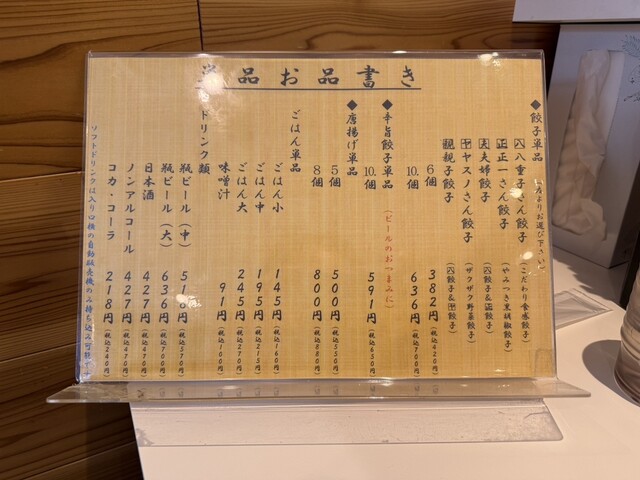 単品お品書き
◆餃子単品
八八重子さん餃子(こだわり食感餃子)
正正一さん餃子(やみつき黒胡椒餃子)
夫夫婦餃子(八餃子&正餃子)
ヤヤスノさん餃子(ザクザク野菜餃子)
親親子餃子(八餃子&ヤ餃子)
6個 382円(税込420円)
10個 636円(税込700円)
◆辛旨餃子単品(ビールのおつまみに)
10個 591円(税込650円)
◆唐揚げ単品
5個 500円(税込550円)
8個 800円(税込880円)
ごはん単品
ごはん小 145円(税込160円)
ごはん中 195円(税込215円)
ごはん大 245円(税込270円)
味噌汁 91円(税込100円)
ドリンク類
瓶ビール(中) 518円(税込570円)
瓶ビール(大) 636円(税込700円)
日本酒 427円(税込470円)
ノンアルコール 427円(税込470円)
コカ・コーラ 218円(税込240円)
ソフトドリンクは入り口横の自動販売機のみ持ち込み可能です